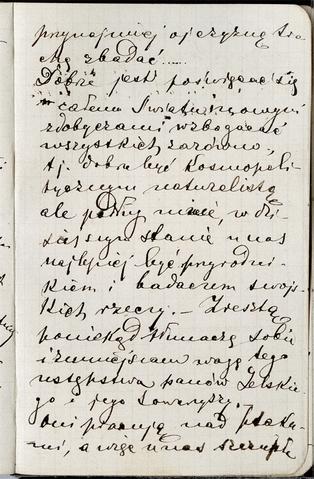 przynajmniej ojczyznę tro
chę zbadać......
Dobrze jest poświęcać się
całemu Światu i nowymi
zdobyczami wzbogacać
wszystkich zarówno,
tj. dobrze być Kosmopoli-
tycznym naturalistą
ale mnie, w dzi-
siejszym stanie u nas
najlepiej być przyrodni-
kiem i badaczem swojs-
kich rzeczy. — Zresztą
poniekąd tłumaczę sobie
i zmniejszam wagę tego
ustępstwa panów Jelskie-
go i jego towarzyszy.
Oni pracują nad ptaka-
mi, a więc u nas szczupłe